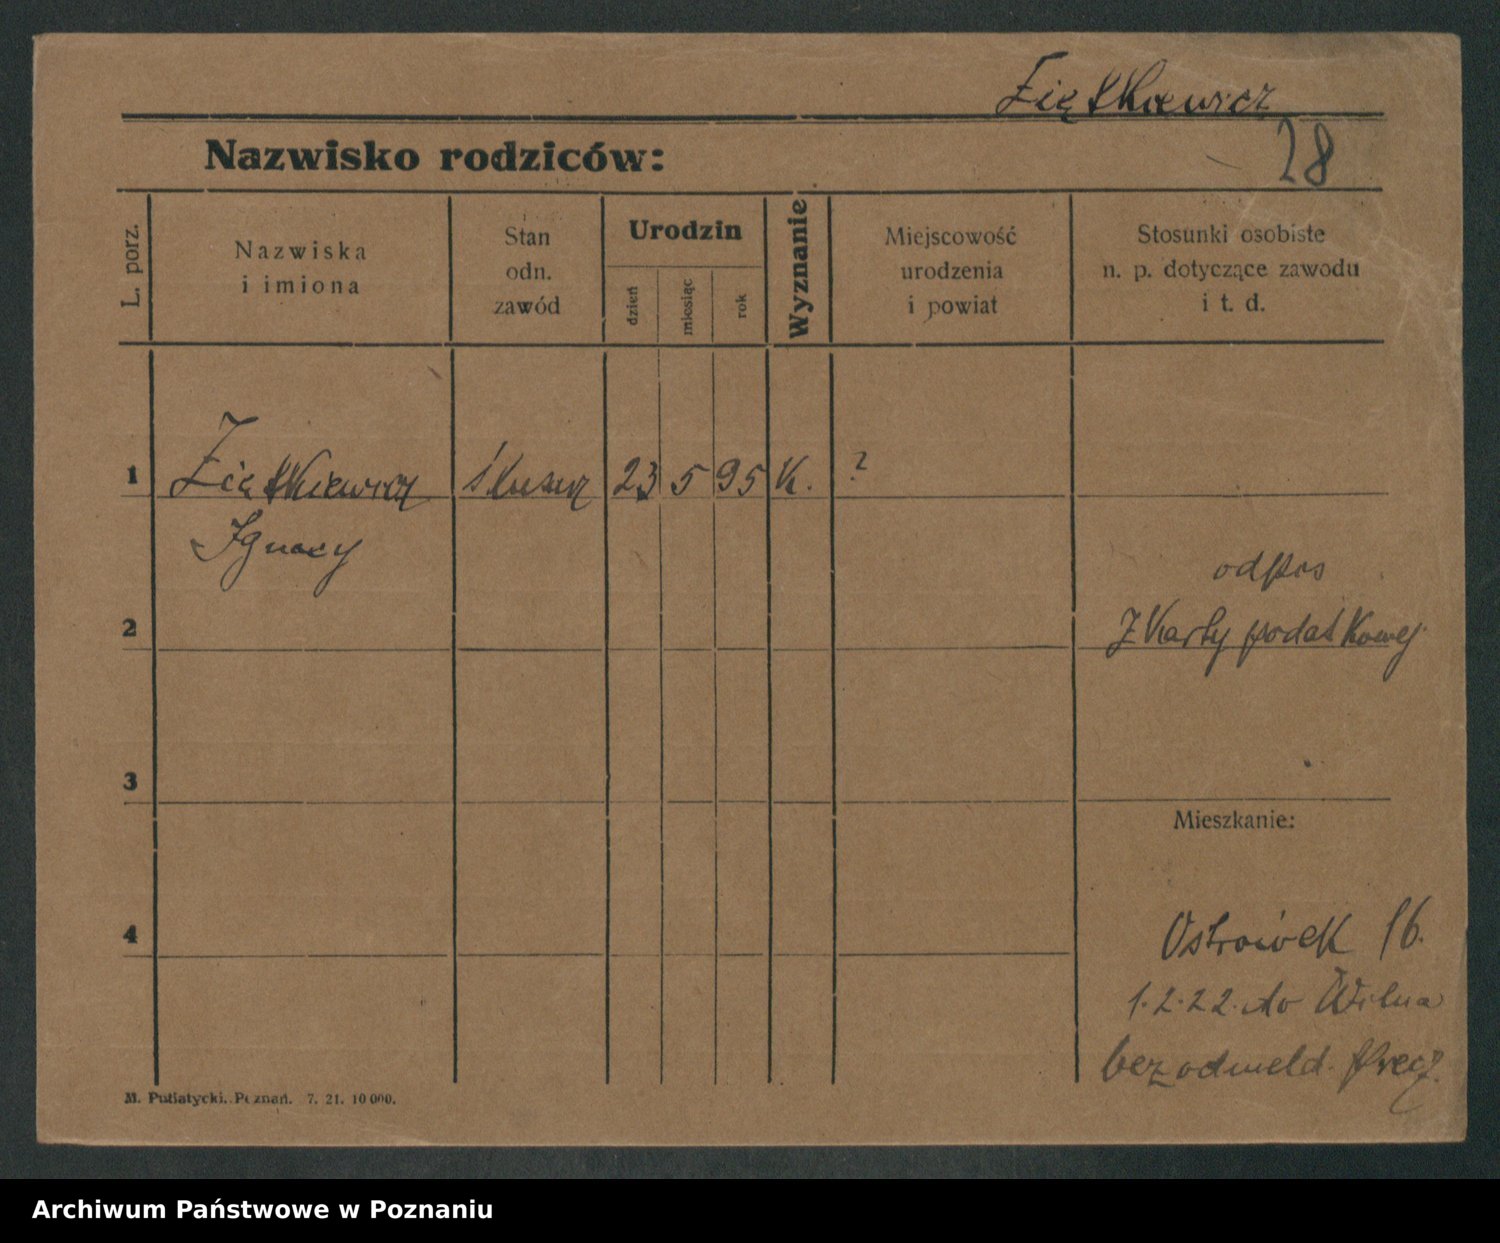 Ziętkiewicz
28
Nazwisko rodziców:
L. porz.
Nazwiska
i imiona
Stan
odn.
zawód
Urodzin
dzień
miesiąc
rok
Wyznanie
Miejscowość
urodzenia
i powiat
Stosunki osobiste
n. p. dotyczące zawodu
i t. d.
1 Ziętkiewicz ślusarz 23 5 95 K. ?
Ignacy
odpis
2 z karty podatkowej
3
Mieszkanie:
4 Ostrówek 16.
1.2.22. do Wilna
bez odmeld.
M. Putiatycki. Poznań. 7. 21. 10 000.
Archiwum Państwowe w Poznaniu